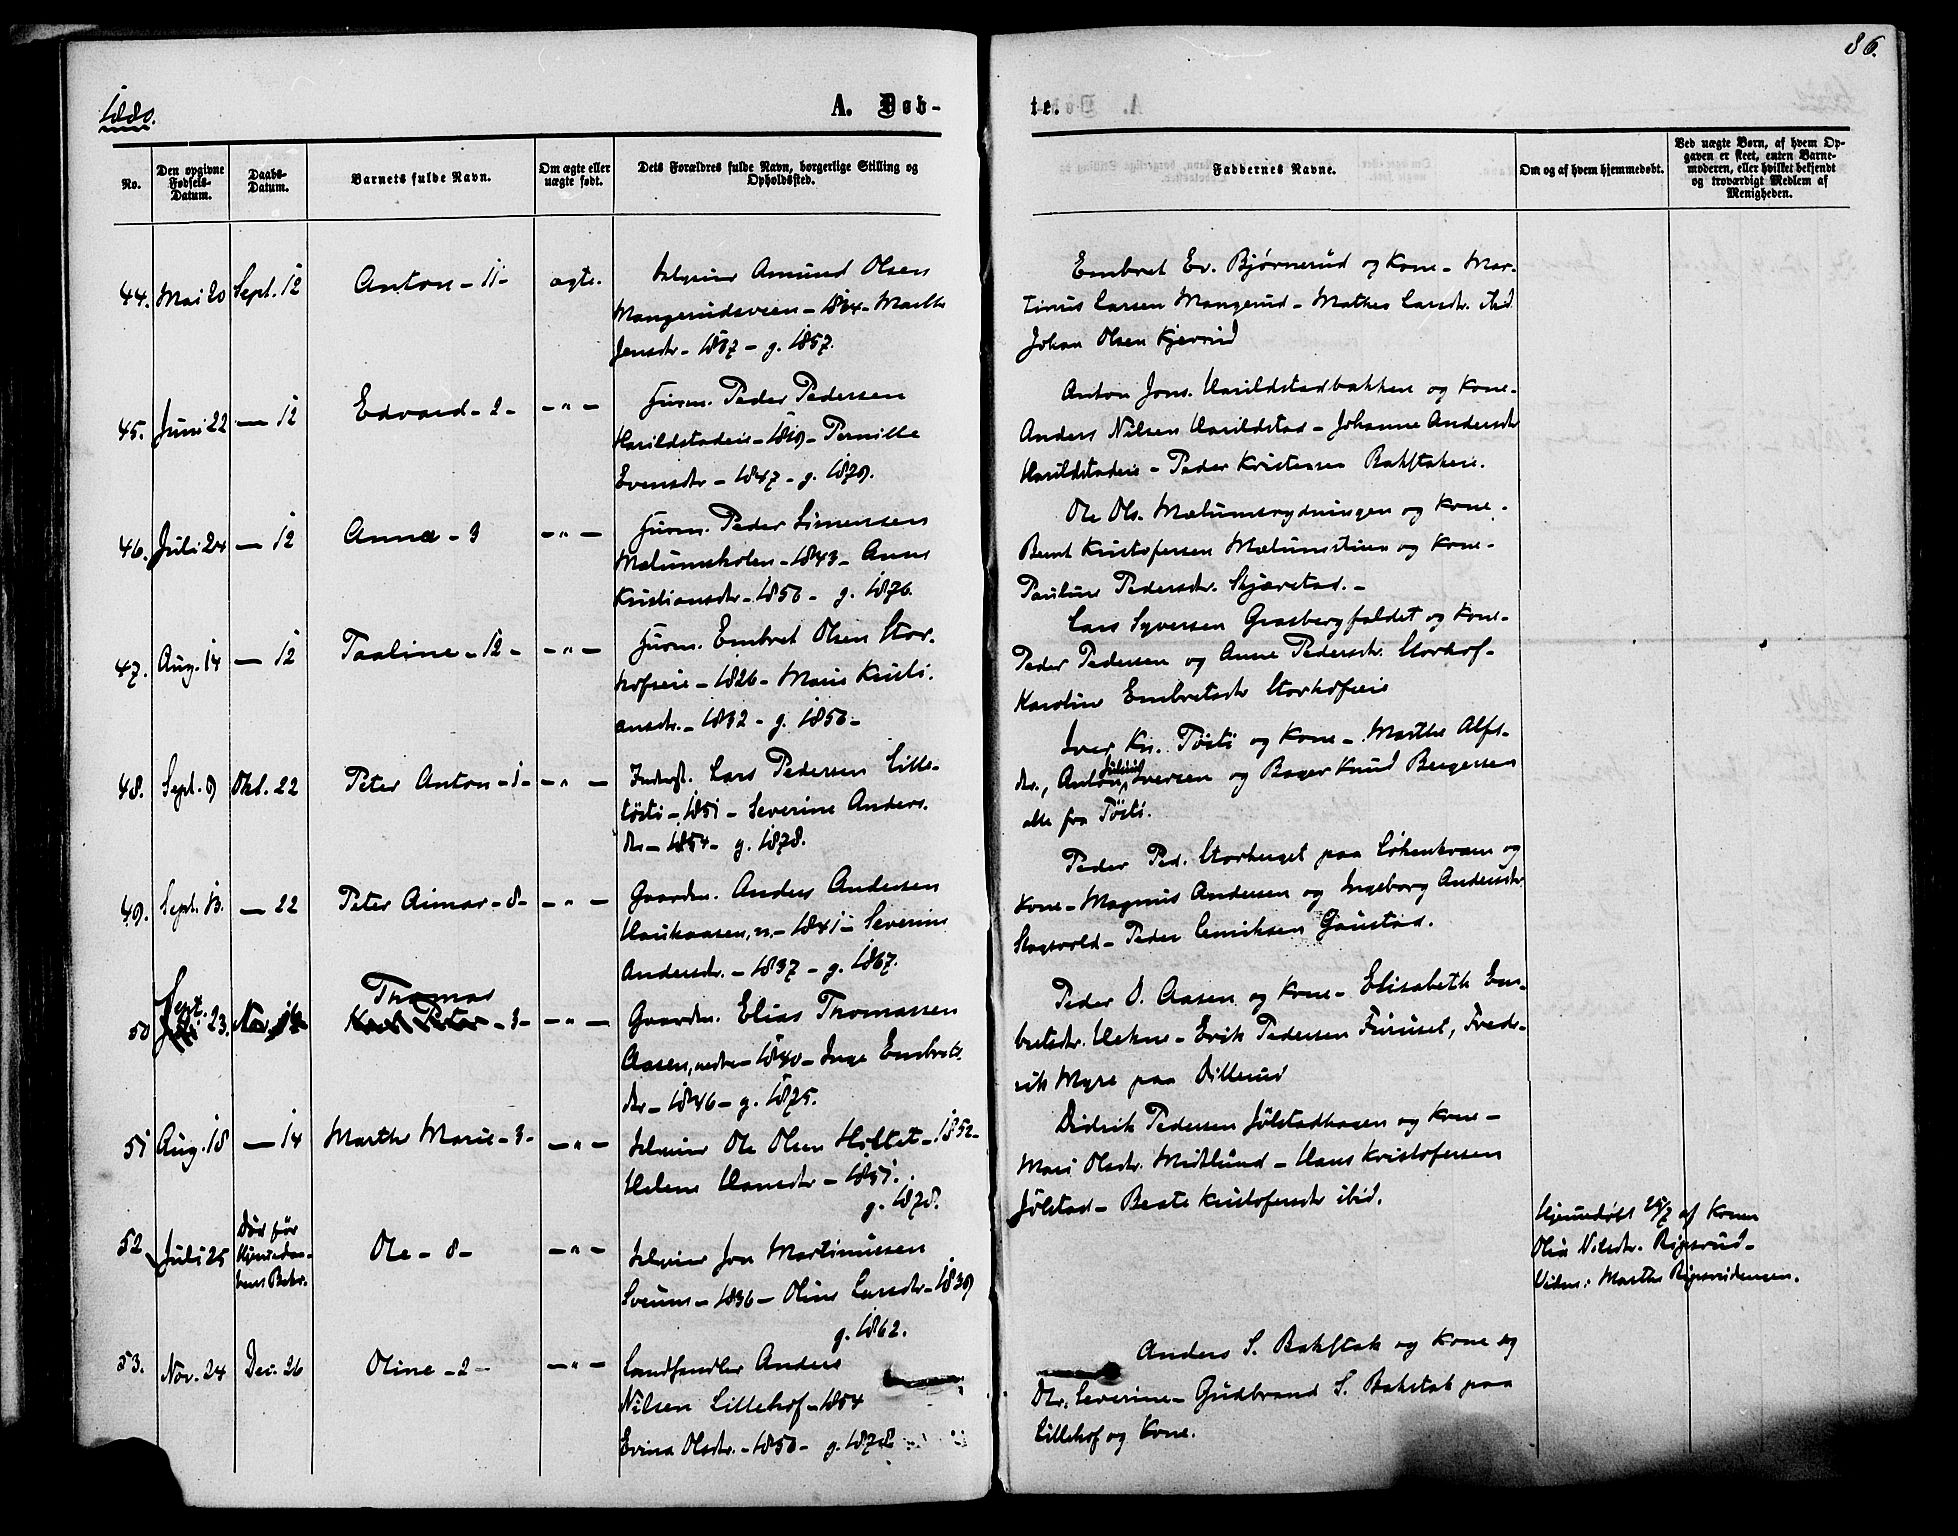 86.
1880.
A. Døb-
te.
No.
Den opgivne Fødsels-Datum.
Daabs-Datum.
Barnets fulde Navn.
Om ægte eller uægte født.
Dets Forældres fulde Navn, borgerlige Stilling og Opholdssted.
Faddernes Navne.
Om og af hvem hjemmedøbt.
Ved uægte Børn, af hvem Op-
gaven er skeet, enten Barne-
moderen, eller hvilket bekjendt
og troværdigt Medlem af
Menigheden.
44. Mai 20 Sept. 12 Anton - 11 - ægte. Selveier Amund Olsen
Mangerudsveen - 1834 - Marthe
Jensdtr - 1837 - g. 1857.
Embret Ev. Bjørnerud og Kone - Mar-
tinus Larsen Mangerud - Mathea Larsdtr. ibid
Johan Olsen Kjernrud
45. Juni 22 — 12 Edvard - 2 - - " - Husm. Peder Pedersen
Harildstadeie - 1849 - Pernille
Evensdtr - 1847 - g. 1879.
Anton Jons. Harildstadbakken og Kone -
Anders Nilsen Harildstad - Johanne Andersdtr
Harildstadeie - Peder Kristensen Bakstadeie.
46. Juli 24 — 12 Anna - 3 - " - Husm. Peder Simensen
Mælumsholen - 1843 - Anne
Kristiansdtr - 1850 - g. 1876.
Ole Ols. Mælumsrydningen og Kone -
Bernt Kristofersen Mælumstuen og Kone -
Pauline Pedersdtr. Skjærstad. -
47. Aug. 14 — 12 Taaline - 12 - - " - Husm. Embret Olsen Stor-
hofseie - 1826 - Marie Kristi-
ansdtr. - 1832 - g. 1850 -
Lars Syversen Grasbergfaldet og Kone -
Peder Pedersen og Anne Pedersdtr. Storhof -
Karoline Embretsdtr Storhofseie
48. Sept. 9 Okt. 22 Peter Anton - 1 - - " - Inderst. Lars Pedersen Lille-
tøsti - 1851 - Severine Anders-
dtr - 1854 - g. 1878.
Iver Kn. Tøsti og Kone - Marthe Alfs-
dtr., Anton Julius Iversen og Bager Knud Bergersen
alle fra Tøsti.
49. Sept. 13. — 22 Peter Aimar - 8 - - " - Gaardm. Anders Andersen
Haukaasen, n. - 1841 - Severine
Andersdtr. - 1837 - g. 1867.
Peder Ped. Storhuget paa Løkenkvæn og
Kone - Magnus Andersen og Ingeborg Andersdtr
Skogsvold - Peder Henriksen Gaustad.
50 Sept. 23. Thomas - 3 - - " - Gaardm. Elias Thomassen
Aasen, nedre - 1840 - Inge Embrets-
dtr - 1846 - g. 1875.
Peder O. Aasen og Kone - Elisabeth Em-
bretsdtr. Hekne - Erik Pedersen Furuset, Fred-
rik Myre paa Dillerud
51 Aug. 18 — 14 Marthe Marie - 3 - - " - Selveier Ole Olsen Hiltet - 1852 -
Helene Hansdtr - 1851.
g. 1878.
Didrik Pedersen Jølstadhagen og Kone -
Mari Olsdtr. Midtlund - Hans Kristofersen
Jølstad - Beate Kristofersdtr ibid.
52 Juli 25 Død før Hjemmedaa-
bens Bekr.
Ole - 8 - - " - Selveier Jon Martinussen
Sveum - 1836 - Oline Larsdtr - 1839
g. 1862.
Hjemmedøbt 25/7 af Konen
Olea Nilsdtr. Ripsrud -
Vidne: Marthe Ripsrudensen.
53. Nov. 24 Dec. 26 Oline - 2 - - " - Landhandler Anders
Nilsen Lillehof - 1854
Evina Olsdtr. - 1850 - g. 1878
Anders S. Bakstak og Kone og
Dtr. Severine - Gudbrand S. Bakstak paa
Lillehof og Kone.